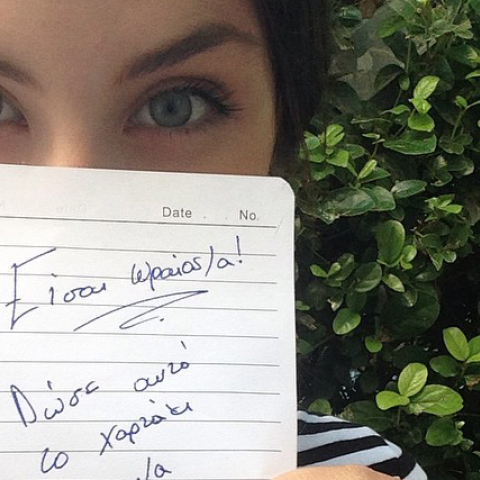 Date No.
Είσαι ωραίος/α!
Δώσε αυτό
το χαρτάκι
/α